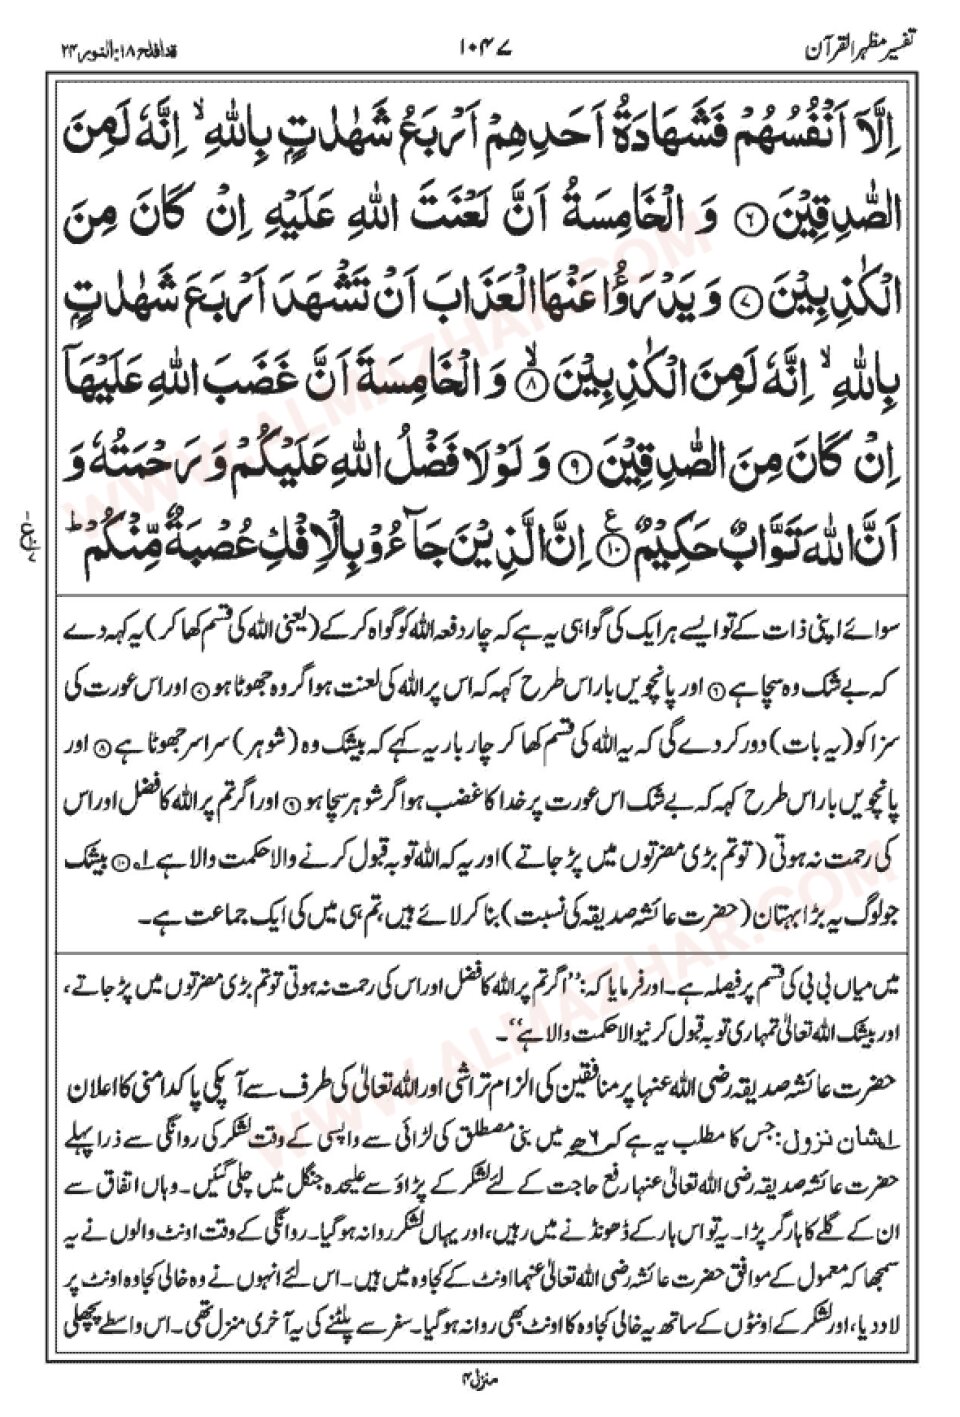 تفسیر مظہر القرآن
۱۰۴۷
قد افلح ۱۸: النور ۲۴
اِلَّاۤ اَنْفُسُهُمْ فَشَهَادَةُ اَحَدِهِمْ اَرْبَعُ شَهٰدٰتٍۭ بِاللّٰهِ ۙ اِنَّهٗ لَمِنَ
الصّٰدِقِيْنَ ۶ وَ الْخَامِسَةُ اَنَّ لَعْنَتَ اللّٰهِ عَلَيْهِ اِنْ كَانَ مِنَ
الْكٰذِبِيْنَ ۷ وَ يَدْرَؤُا عَنْهَا الْعَذَابَ اَنْ تَشْهَدَ اَرْبَعَ شَهٰدٰتٍۭ
بِاللّٰهِ ۙ اِنَّهٗ لَمِنَ الْكٰذِبِيْنَ ۙ ۸ وَ الْخَامِسَةَ اَنَّ غَضَبَ اللّٰهِ عَلَيْهَاۤ
اِنْ كَانَ مِنَ الصّٰدِقِيْنَ ۹ وَ لَوْ لَا فَضْلُ اللّٰهِ عَلَيْكُمْ وَ رَحْمَتُهٗ وَ
اَنَّ اللّٰهَ تَوَّابٌ حَكِيْمٌ ۱۰ ع اِنَّ الَّذِيْنَ جَآءُوْ بِالْاِفْكِ عُصْبَةٌ مِّنْكُمْ ؕ
سوائے اپنی ذات کے تو ایسے ہر ایک کی گواہی یہ ہے کہ چار دفعہ اللہ کو گواہ کر کے (یعنی اللہ کی قسم کھا کر) یہ کہہ دے
کہ بے شک وہ سچا ہے ۶ اور پانچویں بار اس طرح کہے کہ اس پر اللہ کی لعنت ہو اگر وہ جھوٹا ہو ۷ اور اس عورت کی
سزا کو (یہ بات) دور کر دے گی کہ یہ اللہ کی قسم کھا کر چار بار یہ کہے کہ بیشک وہ (شوہر) سراسر جھوٹا ہے ۸ اور
پانچویں بار اس طرح کہے کہ بے شک اس عورت پر خدا کا غضب ہو اگر شوہر سچا ہو ۹ اور اگر تم پر اللہ کا فضل اور اس
کی رحمت نہ ہوتی (تو تم بڑی مضرتوں میں پڑ جاتے) اور یہ کہ اللہ توبہ قبول کرنے والا حکمت والا ہے ۱؎ ۱۰ بیشک
جو لوگ یہ بڑا بہتان (حضرت عائشہ صدیقہ کی نسبت) بنا کر لائے ہیں، تم ہی میں کی ایک جماعت ہے۔
میں میاں بی بی کی قسم پر فیصلہ ہے۔ اور فرمایا کہ: ”اگر تم پر اللہ کا فضل اور اس کی رحمت نہ ہوتی تو تم بڑی مضرتوں میں پڑ جاتے،
اور بیشک اللہ تعالیٰ تمہاری توبہ قبول کرنیوالا حکمت والا ہے“۔
حضرت عائشہ صدیقہ رضی اللہ عنہا پر منافقین کی الزام تراشی اور اللہ تعالیٰ کی طرف سے آپکی پاکدامنی کا اعلان
۱؎ شان نزول: جس کا مطلب یہ ہے کہ ۶ھ میں بنی مصطلق کی لڑائی سے واپسی کے وقت لشکر کی روانگی سے ذرا پہلے
حضرت عائشہ صدیقہ رضی اللہ تعالیٰ عنہا رفع حاجت کے لئے لشکر کے پڑاؤ سے علیحدہ جنگل میں چلی گئیں۔ وہاں اتفاق سے
ان کے گلے کا ہار گر پڑا۔ یہ تو اس ہار کے ڈھونڈنے میں رہیں، اور یہاں لشکر روانہ ہو گیا۔ روانگی کے وقت اونٹ والوں نے یہ
سمجھا کہ معمول کے موافق حضرت عائشہ رضی اللہ تعالیٰ عنہما اونٹ کے کجاوہ میں ہیں۔ اس لئے انہوں نے وہ خالی کجاوہ اونٹ پر
لاد دیا، اور لشکر کے اونٹوں کے ساتھ یہ خالی کجاوہ کا اونٹ بھی روانہ ہو گیا۔ سفر سے پلٹنے کی یہ آخری منزل تھی۔ اس واسطے پچھلی
منزل ۴
WWW.ALMAZHAR.COM
WWW.ALMAZHAR.COM